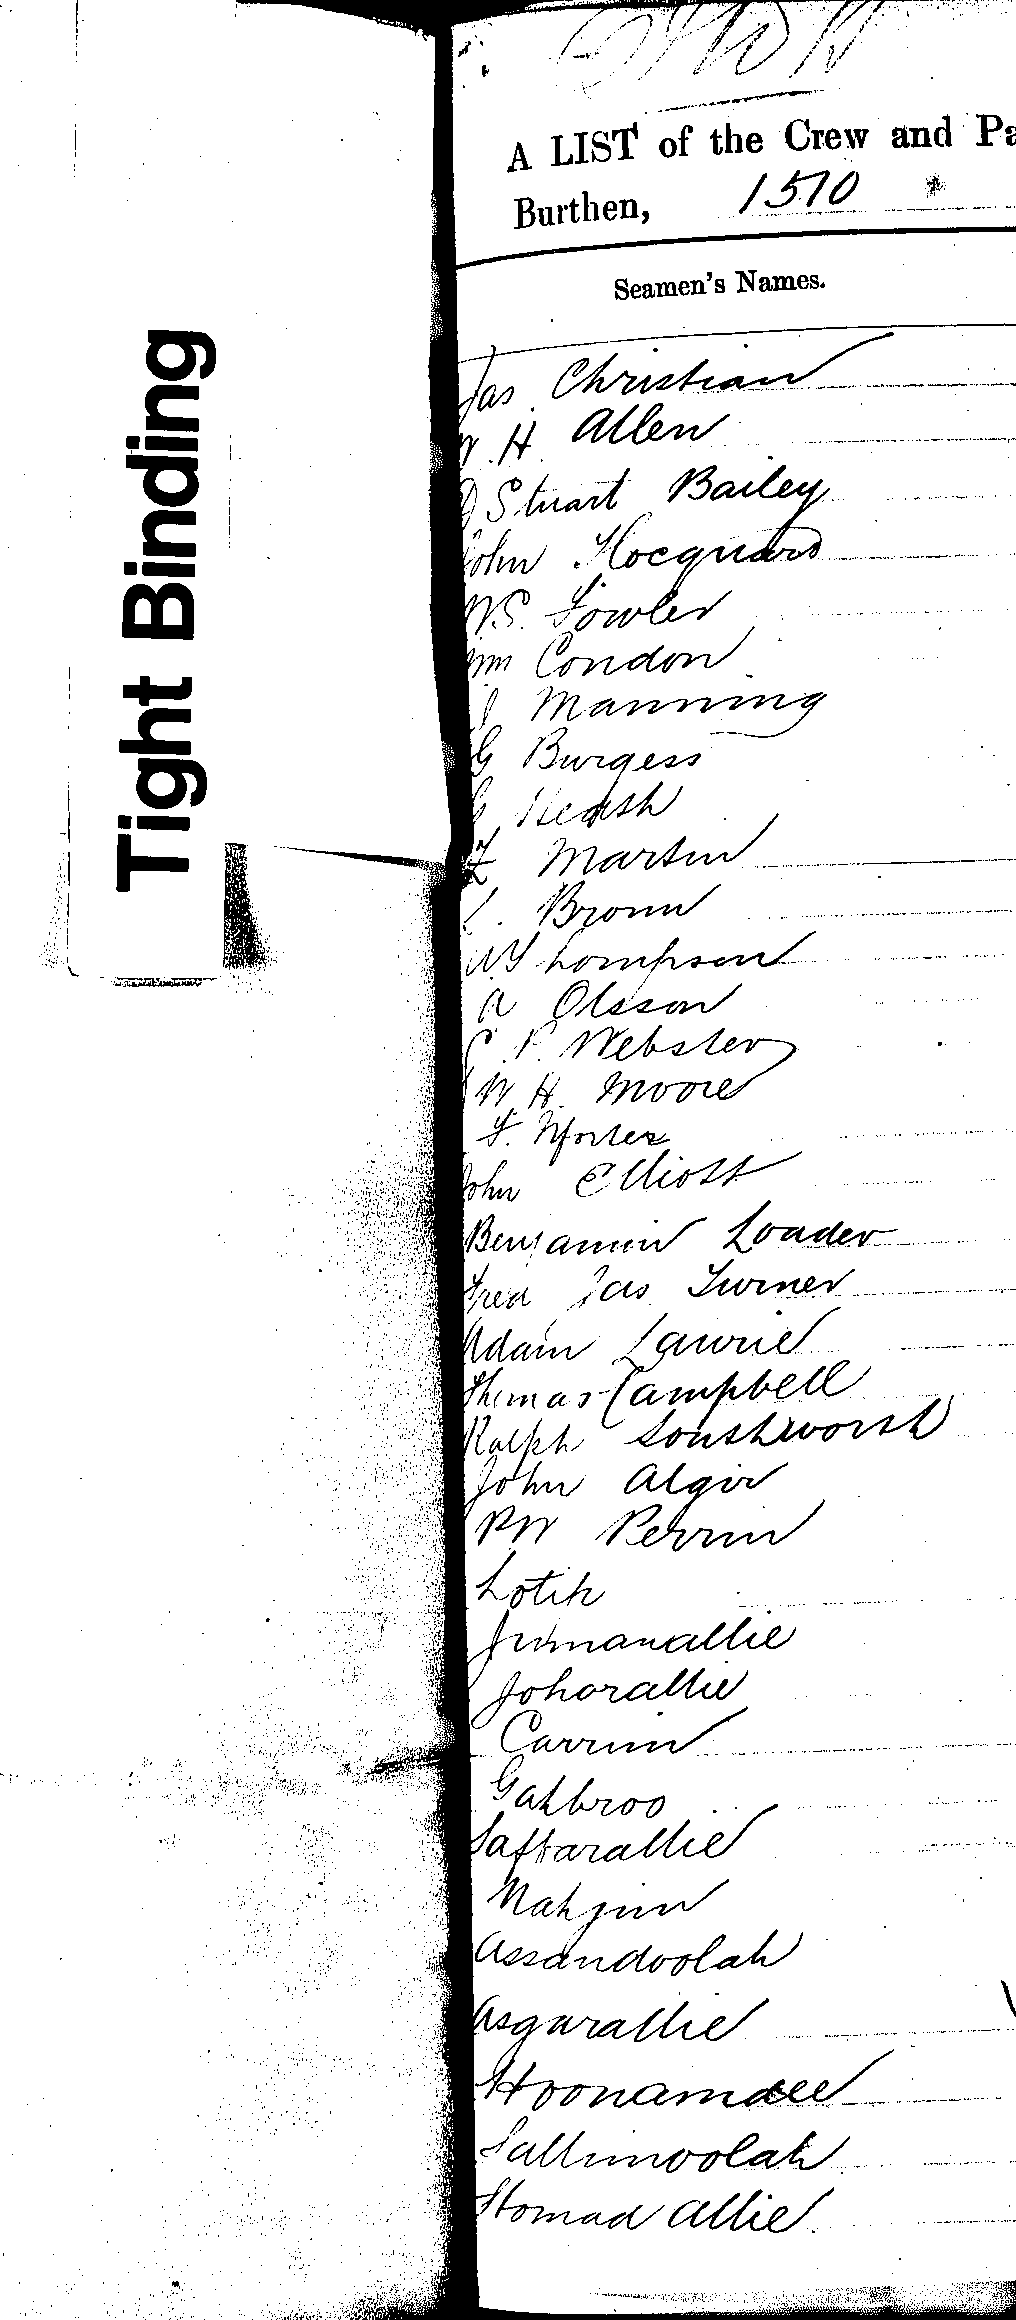 Tight Binding
A LIST of the Crew and Pa
Burthen, 1510
Seamen's Names.
Jas. Christian
W. H. Allen
D Stuart Bailey
John Hocquard
W.S. Fowler
Wm Condon
J Manning
G Burgess
G
Z Martin
Brown
W Thompson
A Olsson
C. F. Webster
W H. Moore
F.
John Elliott
Benjamin Loader
Fred Jas Turner
Adam Lawrie
Thomas Campbell
Ralph Southworth
John Algir
P W Perrin
Lotih
Jumanallie
Johorallie
Carrim
Gahbroo
Saffarallie
Nahjim
Assandoolah
Asgarallie
Hoonamdee
Sallimoolah
Homad Allie